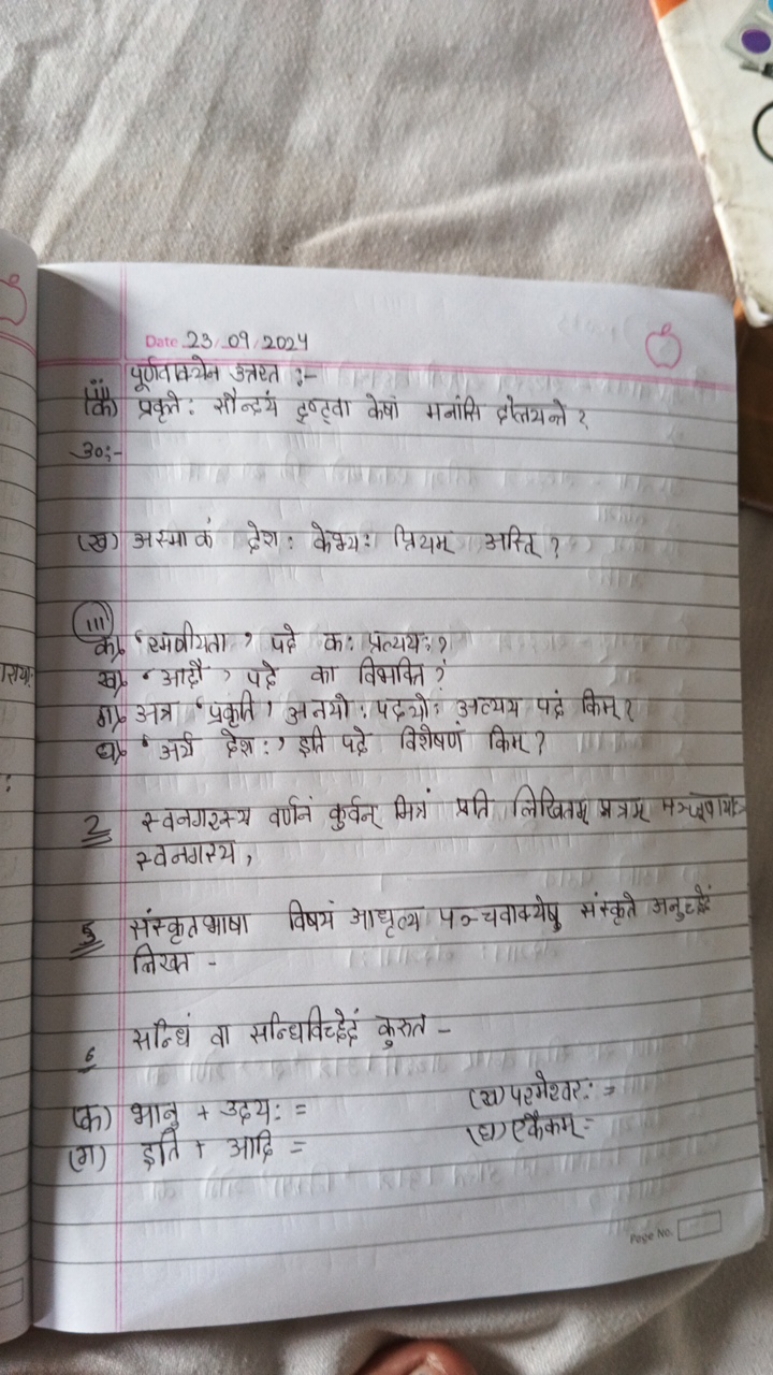 Date 23/09/2024
पूर्णवाक्येन उत्तरत :-
(क) प्रकृते: सौन्दर्यं दृष्ट्वा केषां मनांसि
उ०:-
(ख) अस्माकं देश: केभ्य: प्रियम् अस्ति ?
III
क) ' रमणीयता ' पदे क: प्रत्यय: ?
ख) ' आदौ ' पदे का विभक्ति ?
ग) अत्र ' प्रकृति ' अनयो: पदयो: अव्यय पदं किम् ?
घ) ' अयं देश: ' इति पदे विशेषणं किम् ?
2 स्वनगरस्य वर्णनं कुर्वन् मित्रं प्रति लिखितम् पत्रम्
स्वनगस्य,
5 संस्कृतभाषा विषयं आधृत्य पञ्चवाक्येषु संस्कृते अनुच्छेदं
लिखत -
6 सन्धिं वा सन्धिविच्छेदं कुरुत -
(क) भानु + उदय: = (ख) परमेश्वर: =
(ग) इति + आदि = (घ) एकैकम् =
Page No.